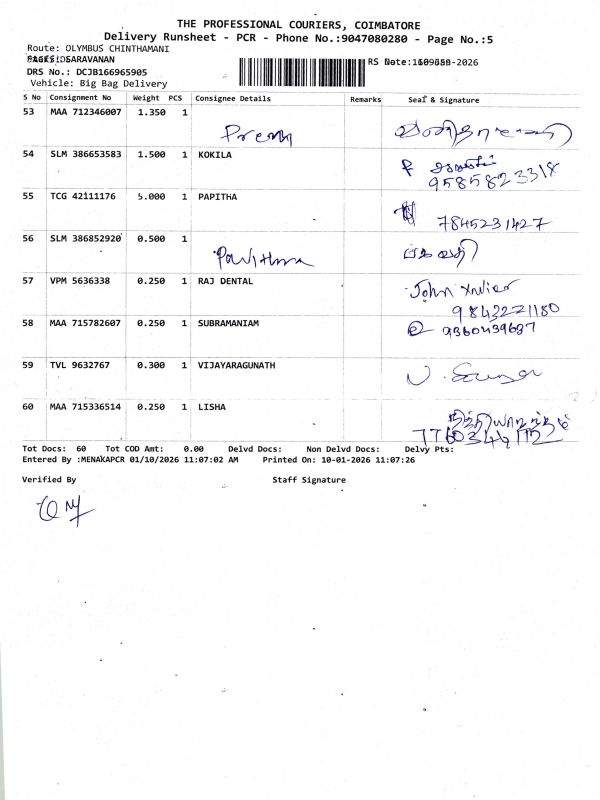 THE PROFESSIONAL COURIERS, COIMBATORE
Delivery Runsheet - PCR - Phone No.:9047080280 - Page No.:5
Route: OLYMBUS CHINTHAMANI
SARAVANAN
DRS No.: DCJB166965905
Vehicle: Big Bag Delivery
S No Consignment No Weight PCS Consignee Details Remarks Seal & Signature
53 MAA 712346007 1.350 1 Prema
54 SLM 386653583 1.500 1 KOKILA
9585823318
55 TCG 42111176 5.000 1 PAPITHA
7845231427
56 SLM 386852920 0.500 1 Pavithra
57 VPM 5636338 0.250 1 RAJ DENTAL John Xavier
9843221180
58 MAA 715782607 0.250 1 SUBRAMANIAM 9360439687
59 TVL 9632767 0.300 1 VIJAYARAGUNATH
60 MAA 715336514 0.250 1 LISHA
Tot Docs: 60 Tot COD Amt: 0.00 Delvd Docs: Non Delvd Docs: Delvy Pts:
Entered By :MENAKAPCR 01/10/2026 11:07:02 AM Printed On: 10-01-2026 11:07:26
Verified By Staff Signature